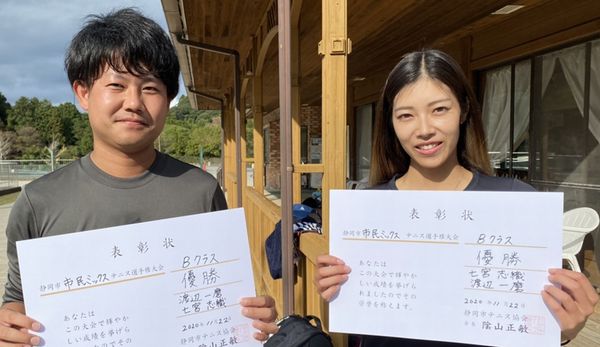 表彰状
静岡市 市民ミックス テニス選手権大会
Bクラス
優勝
渡辺 一磨
七宮 志織
あなたは
この大会で輝やか
しい成績を挙げら
れましたのでその
2020年11月22日
静岡市テニス協会
陰山正敏
表彰状
静岡市 市民ミックス テニス選手権大会
Bクラス
優勝
七宮 志織
渡辺 一磨
あなたは
この大会で輝やか
しい成績を挙げら
れましたのでその
栄誉を称えます。
2020年11月22日
静岡市テニス協会
会長 陰山正敏